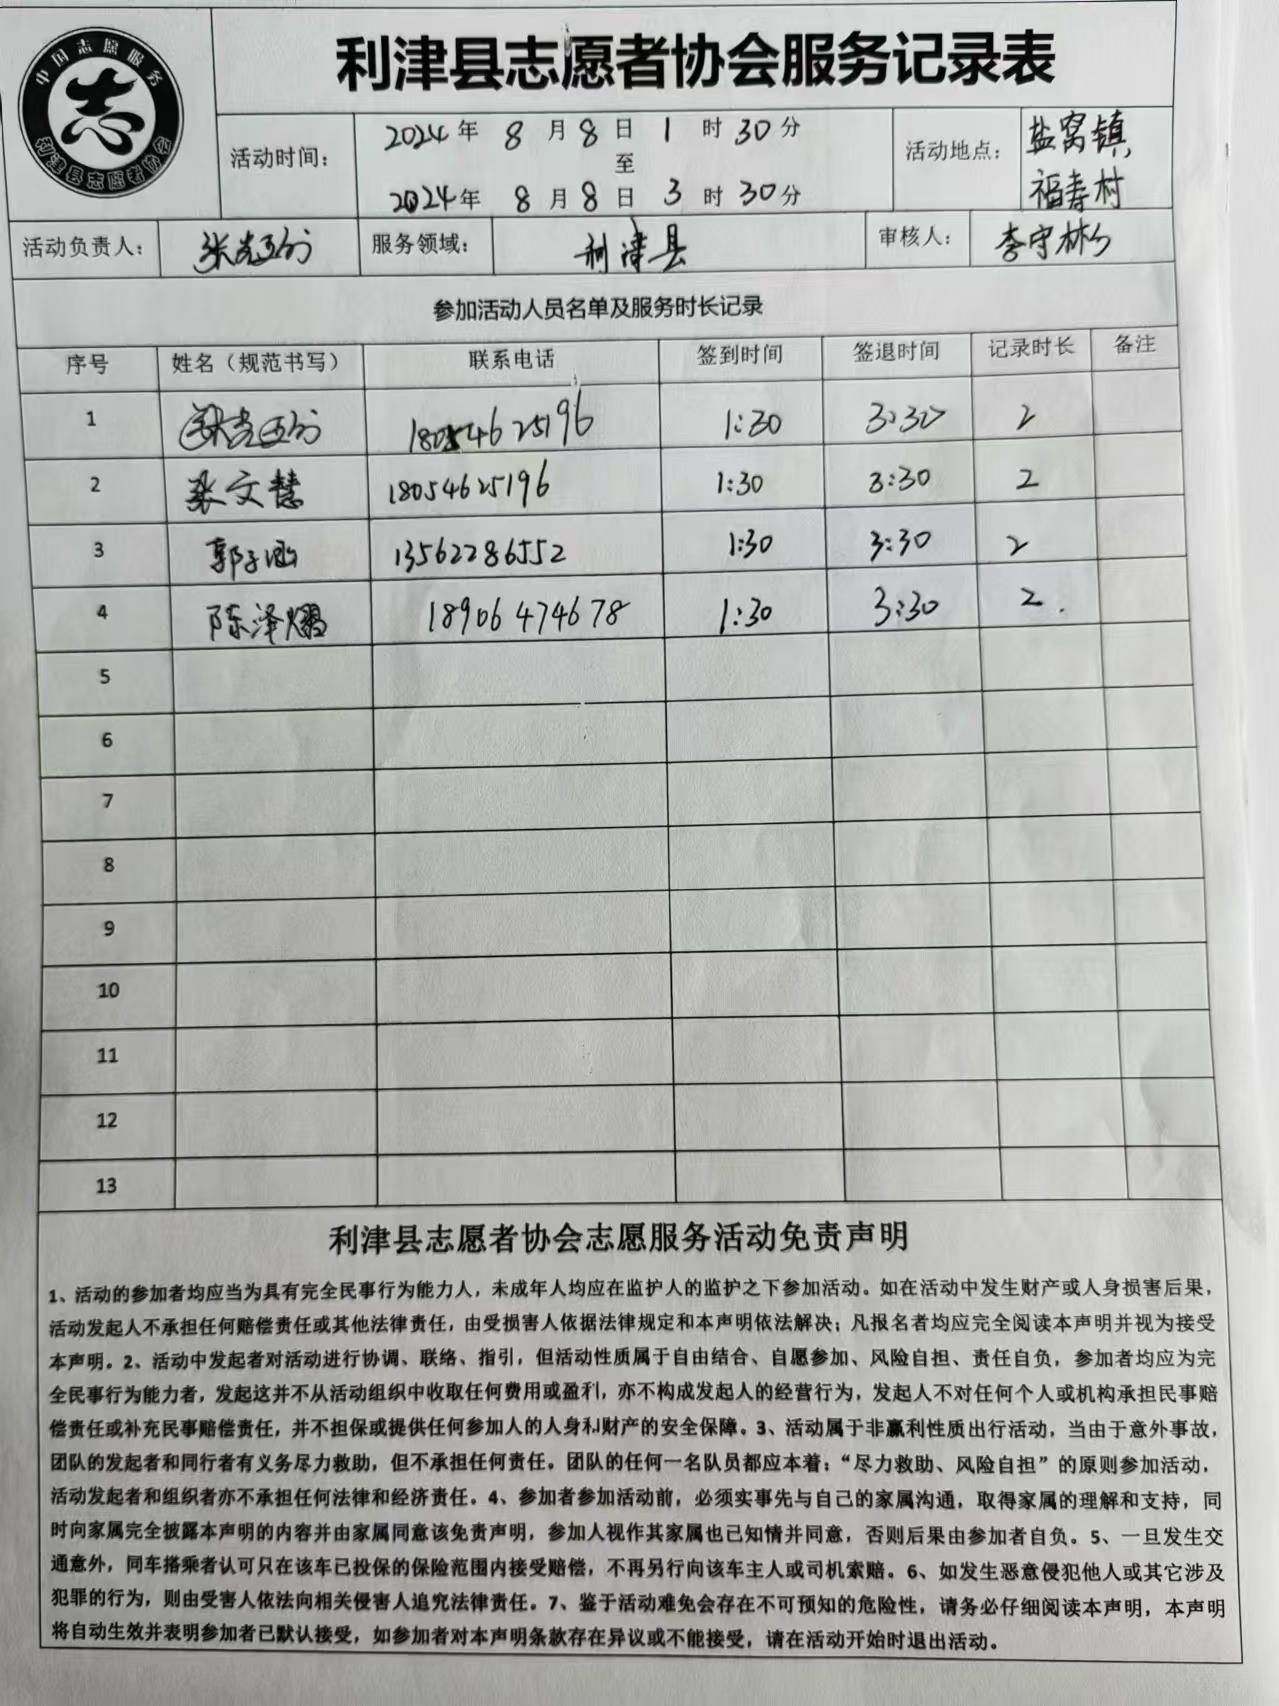 中国志愿服务
志
利津县志愿者协会
利津县志愿者协会服务记录表
活动时间: 2024年 8 月 8 日 1 时 30分
至
2024年 8 月 8 日 3 时 30分
活动地点: 盐窝镇,
福寿村
活动负责人: 服务领域: 利津县 审核人: 李守彬
参加活动人员名单及服务时长记录
序号 姓名(规范书写) 联系电话 签到时间 签退时间 记录时长 备注
1 18054625196 1:30 3:30 2
2 张文慧 18054625196 1:30 3:30 2
3 郭子涵 13562286552 1:30 3:30 2
4 陈泽熠 18906474678 1:30 3:30 2.
5
6
7
8
9
10
11
12
13
利津县志愿者协会志愿服务活动免责声明
1、活动的参加者均应当为具有完全民事行为能力人，未成年人均应在监护人的监护之下参加活动。如在活动中发生财产或人身损害后果，
活动发起人不承担任何赔偿责任或其他法律责任，由受损害人依据法律规定和本声明依法解决；凡报名者均应完全阅读本声明并视为接受
本声明。2、活动中发起者对活动进行协调、联络、指引，但活动性质属于自由结合、自愿参加、风险自担、责任自负，参加者均应为完
全民事行为能力者，发起这并不从活动组织中收取任何费用或盈利，亦不构成发起人的经营行为，发起人不对任何个人或机构承担民事赔
偿责任或补充民事赔偿责任，并不担保或提供任何参加人的人身和财产的安全保障。3、活动属于非赢利性质出行活动，当由于意外事故，
团队的发起者和同行者有义务尽力救助，但不承担任何责任。团队的任何一名队员都应本着：“尽力救助、风险自担”的原则参加活动，
活动发起者和组织者亦不承担任何法律和经济责任。4、参加者参加活动前，必须实事先与自己的家属沟通，取得家属的理解和支持，同
时向家属完全披露本声明的内容并由家属同意该免责声明，参加人视作其家属也已知情并同意，否则后果由参加者自负。5、一旦发生交
通意外，同车搭乘者认可只在该车已投保的保险范围内接受赔偿，不再另行向该车主人或司机索赔。6、如发生恶意侵犯他人或其它涉及
犯罪的行为，则由受害人依法向相关侵害人追究法律责任。7、鉴于活动难免会存在不可预知的危险性，请务必仔细阅读本声明，本声明
将自动生效并表明参加者已默认接受，如参加者对本声明条款存在异议或不能接受，请在活动开始时退出活动。